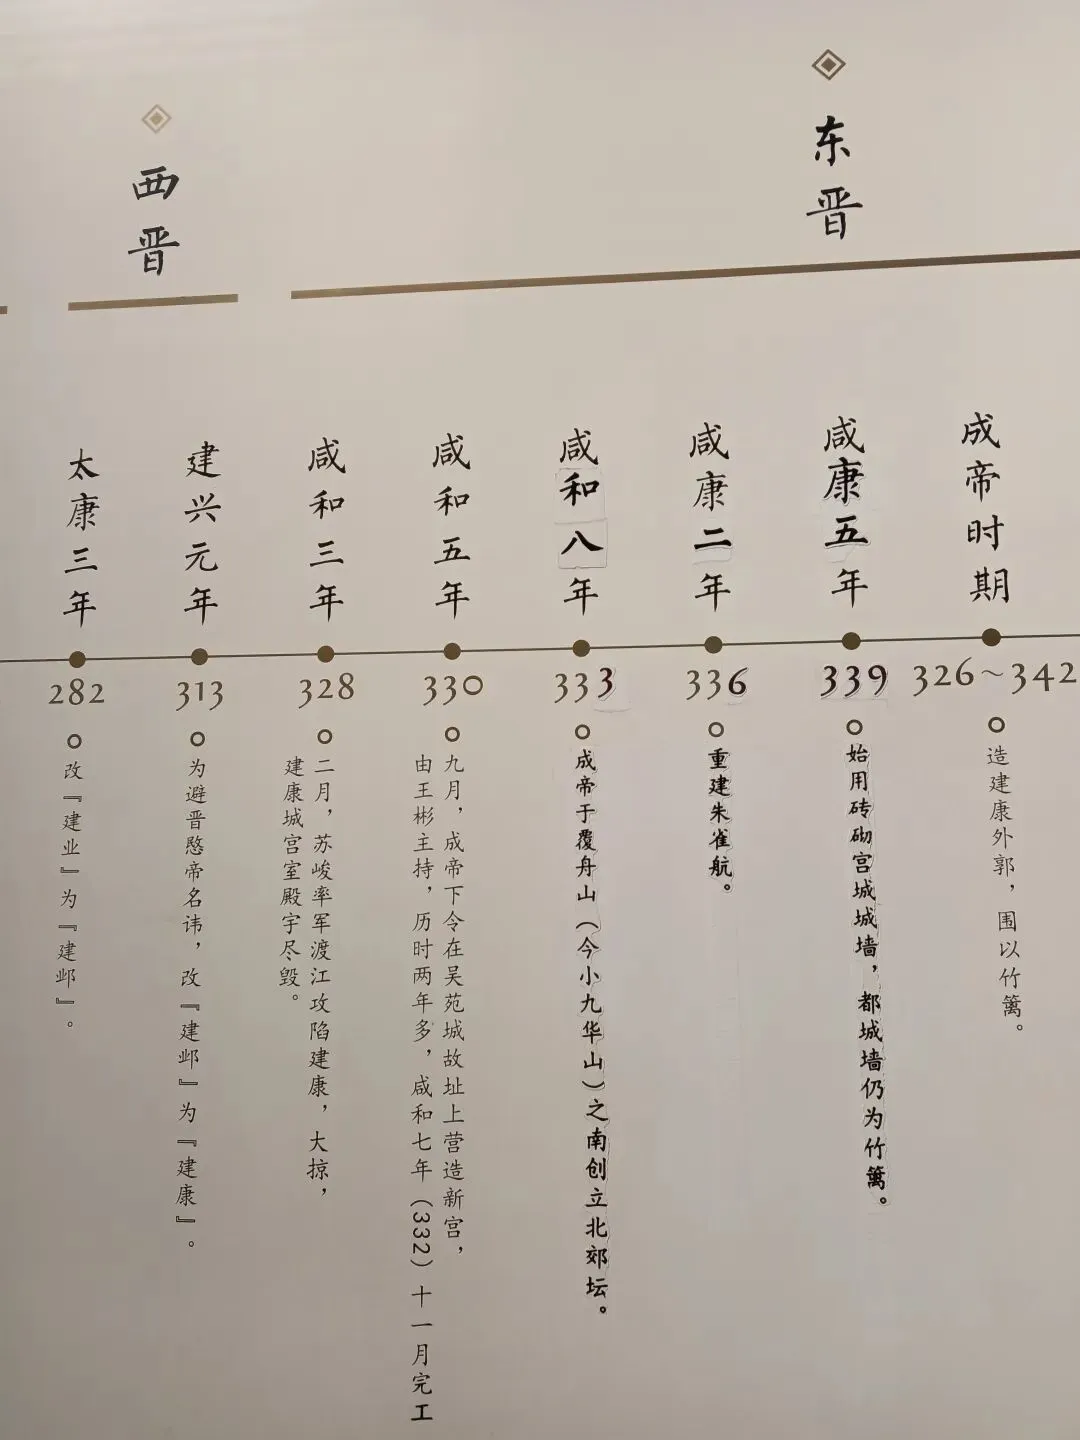 西晋
东晋
太康三年
282
改『建业』为『建邺』。
建兴元年
313
为避晋愍帝名讳，改『建邺』为『建康』。
咸和三年
328
二月，苏峻率军渡江攻陷建康，大掠，
建康城宫室殿宇尽毁。
咸和五年
330
九月，成帝下令在吴苑城故址上营造新宫，
由王彬主持，历时两年多，咸和七年（332）十一月完工
咸和八年
333
成帝于覆舟山（今小九华山）之南创立北郊坛。
咸康二年
336
重建朱雀航。
咸康五年
339
始用砖砌宫城城墙，都城墙仍为竹篱。
成帝时期
326～342
造建康外郭，围以竹篱。